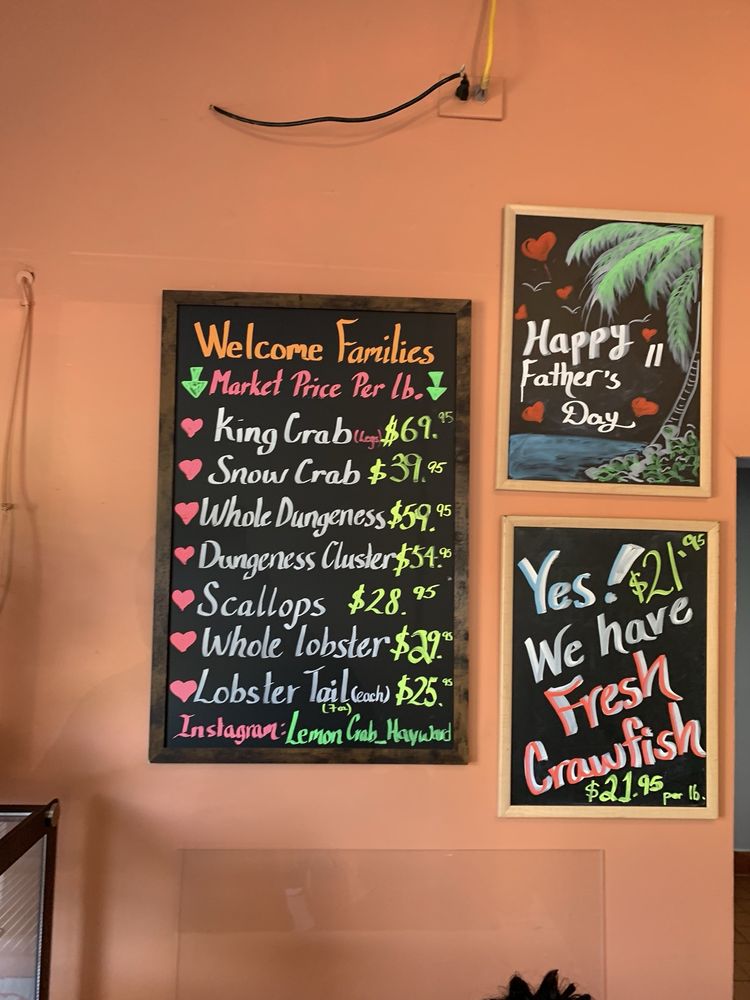 Welcome Families
Market Price Per lb.
King Crab (Legs) $69.95
Snow Crab $39.95
Whole Dungeness $59.95
Dungeness Cluster $54.95
Scallops $28.95
Whole lobster $29.95
Lobster Tail (each) $25.95
(7oz)
Instagram: Lemon Crab_Hayward
Happy
Father's
Day
Yes! $21.95
We have
Fresh
Crawfish
$21.95 per lb.